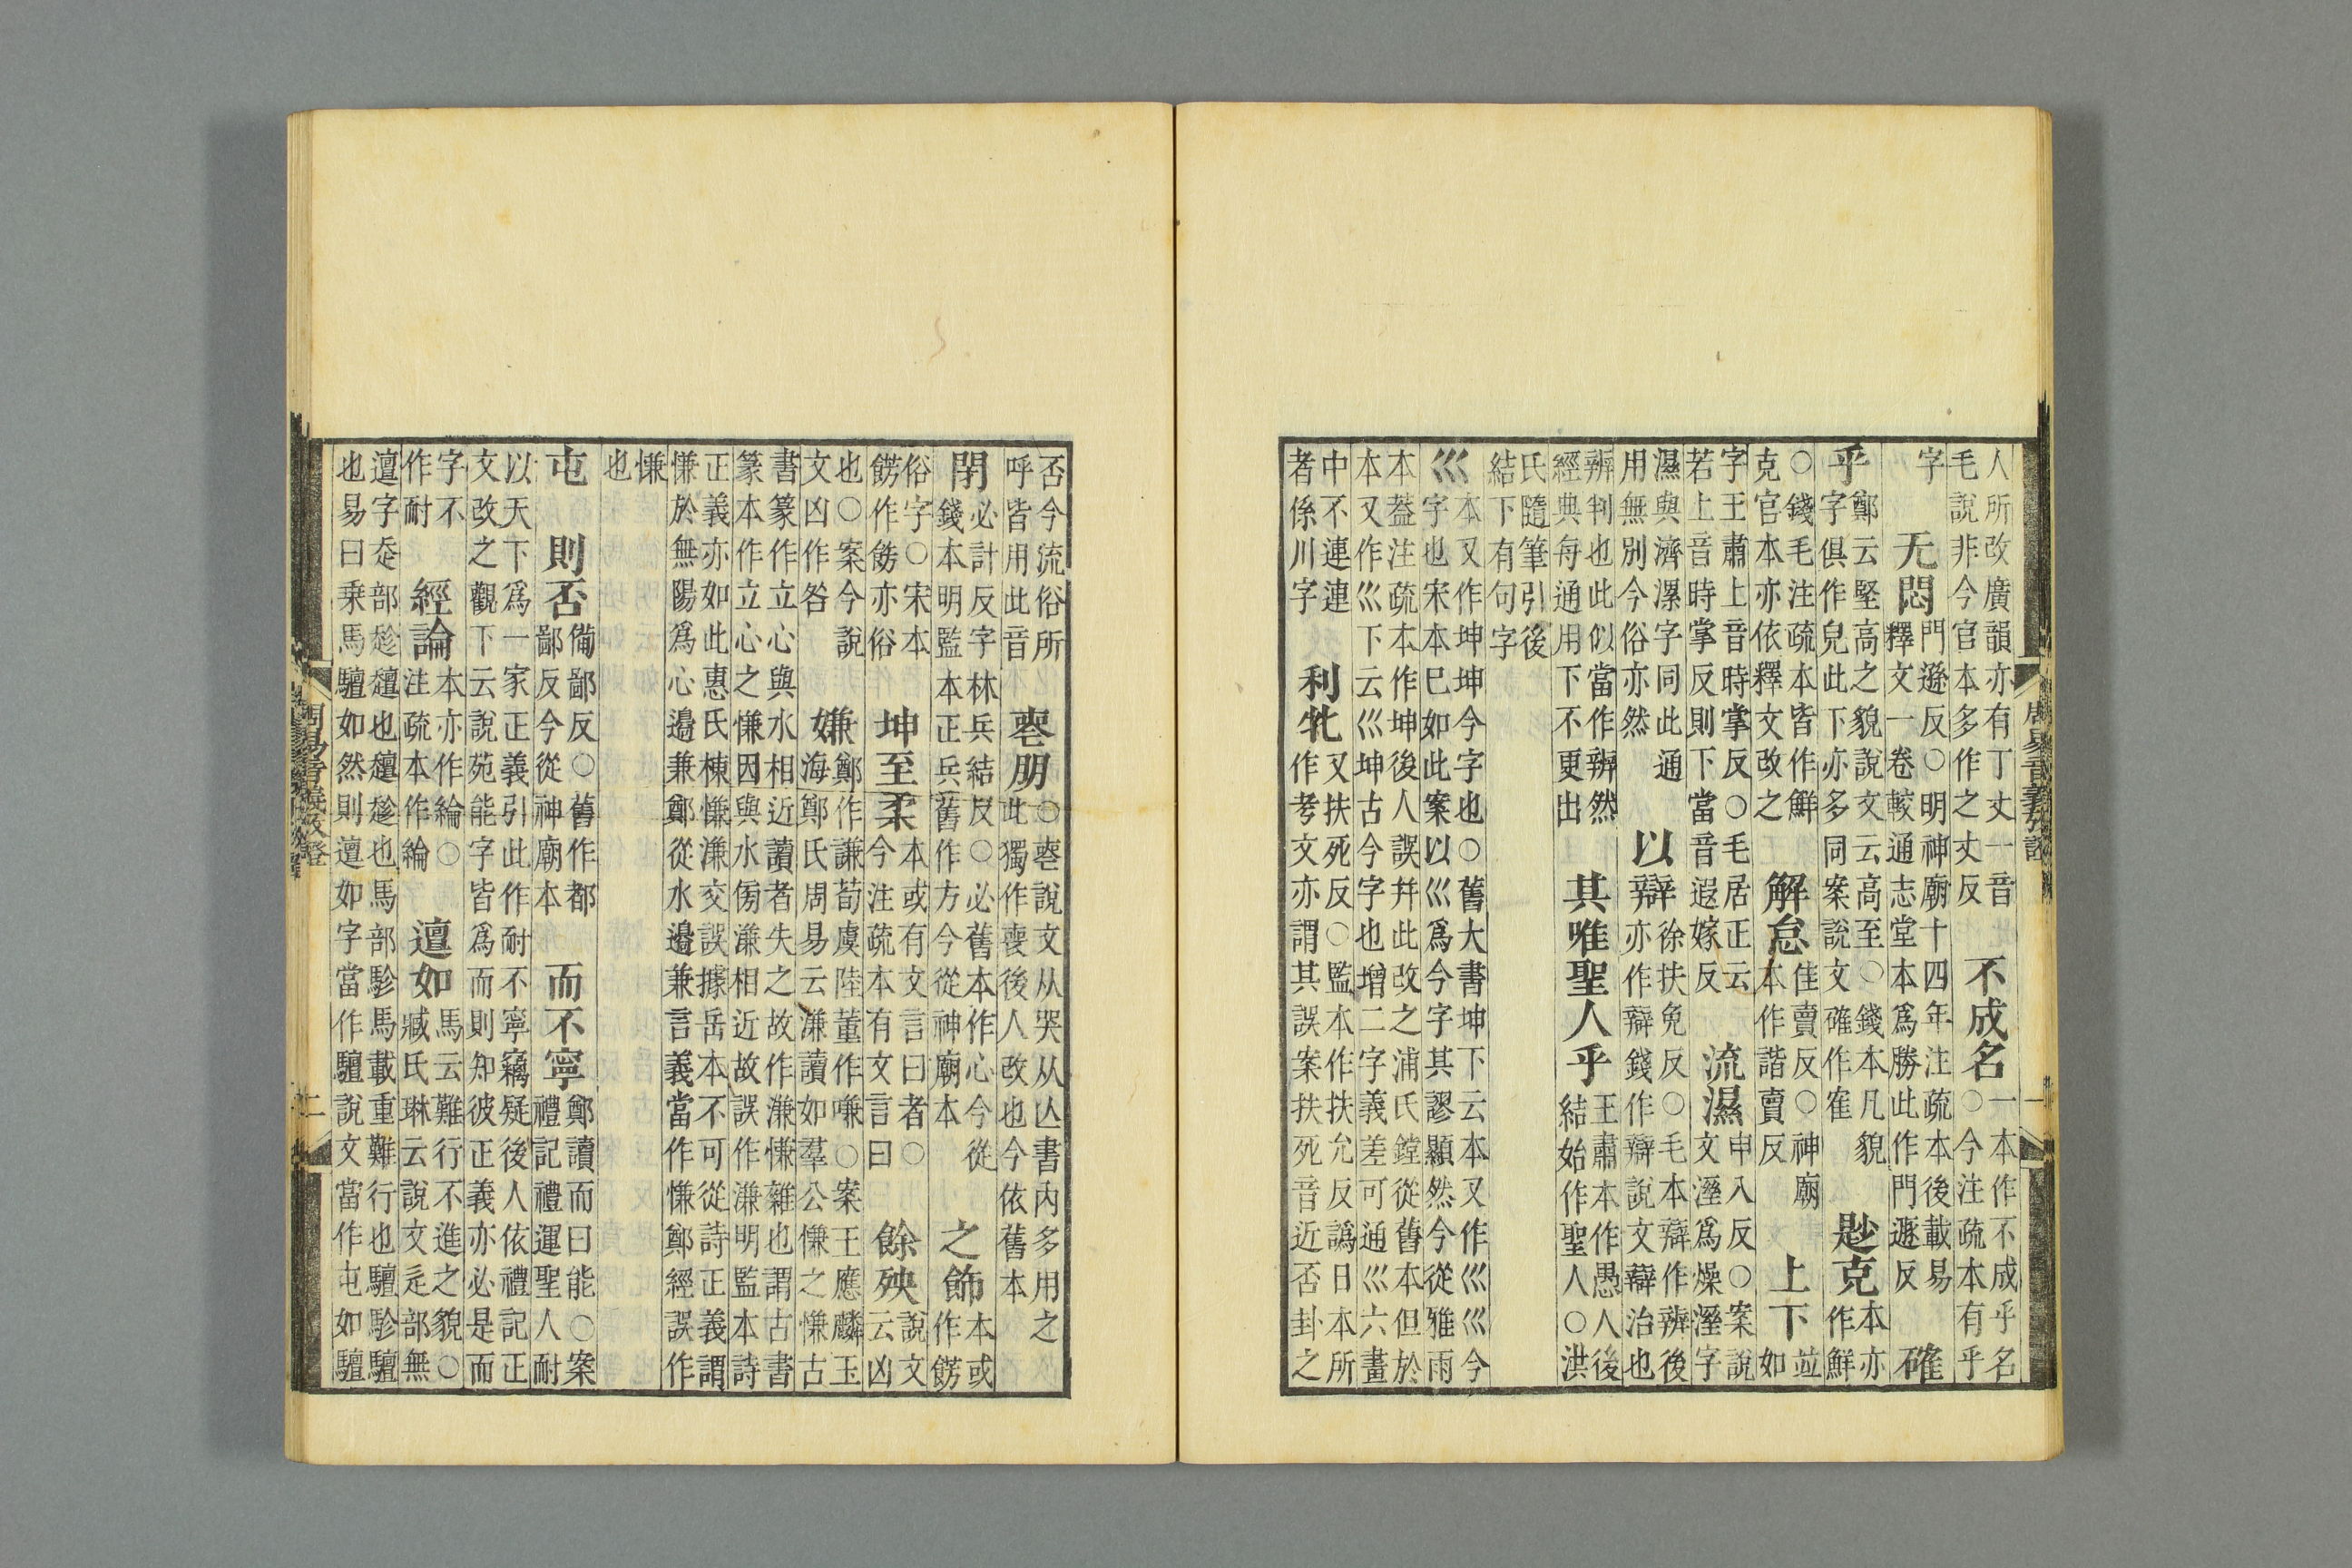 人所改廣韻亦有丁丈一音
毛說非今官本多作之丈反
不成名
一本作不成乎名
○今注疏本有乎
字
无悶
門遜反○明神廟十四年注疏本後載易
釋文一卷較通志堂本爲勝此作門遯反
確
乎
鄭云堅高之貌說文云高至○錢本凡貌
字俱作皃此下亦多同案說文確作隺
尟克
本亦
作鮮
○錢毛注疏本皆作鮮
克官本亦依釋文改之
解怠
佳賣反○神廟
本作諧賣反
上下
並
如
字王肅上音時掌反○毛居正云
若上音時掌反則下當音遐嫁反
流濕
申入反○案說
文溼爲燥溼字
濕與濟漯字同此通
用無別今俗亦然
以辯
徐扶免反○毛本辯作辨後
亦作辯錢作辯說文辯治也
辨判也此似當作辨然
經典每通用下不更出
其唯聖人乎
王肅本作愚人後
結始作聖人○洪
氏隨筆引後
結下有句字
巛
本又作坤坤今字也○舊大書坤下云本又作巛巛今
字也宋本巳如此案以巛爲今字其謬顯然今從雅雨
本葢注疏本作坤後人誤幷此改之浦氏鏜從舊本但於
本又作巛下云巛坤古今字也增二字義差可通巛六畫
中不連連
者係川字
利牝
又扶死反○監本作扶允反譌日本所
作考文亦謂其誤案扶死音近否卦之
周易音義攷證
一
否今流俗所
呼皆用此音
喪朋
○喪說文从哭从亾書內多用之
此獨作喪後人改也今依舊本
閉
必計反字林兵結反○必舊本作心今從
錢本明監本正兵舊作方今從神廟本
之飾
本或
作餝
俗字○宋本
餝作飭亦俗
坤至柔
本或有文言曰者○
今注疏本有文言曰
餘殃
說文
云凶
也○案今說
文凶作咎
嫌
鄭作謙荀虞陸董作嗛○案王應麟玉
海鄭氏周易云溓讀如羣公慊之慊古
書篆作立心與水相近讀者失之故作溓慊雜也謂古書
篆本作立心之慊因與水傍溓相近故誤作溓明監本詩
正義亦如此惠氏棟慊溓交誤據岳本不可從詩正義謂
慊於無陽爲心邊兼鄭從水邊兼言義當作慊鄭經誤作
慊
也
屯
則否
備鄙反○舊作都
鄙反今從神廟本
而不寧
鄭讀而曰能○案
禮記禮運聖人耐
以天下爲一家正義引此作耐不寧竊疑後人依禮記正
文改之觀下云說苑能字皆爲而則知彼正義亦必是而
字不
作耐
經論
本亦作綸○
注疏本作綸
邅如
馬云難行不進之貌○
臧氏琳云說文辵部無
邅字走部趁䞴也䞴趁也馬部駗馬載重難行也驙駗驙
也易曰乘馬驙如然則邅如字當作驙說文當作屯如驙
周易音義攷證
二